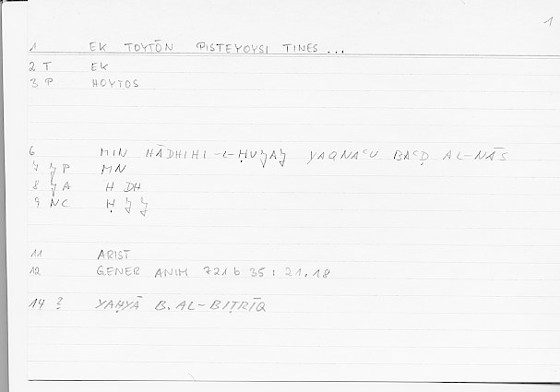 1
1 EK TOYTŌN PISTEYOYSI TINES ...
2 T EK
3 P HOYTOS
6 MIN HĀDHIHI-L-ḤUJAJ YAQNAʿU BAʿḌ AL-NĀS
7 JP MN
8 JA H DH
9 NC Ḥ J J
11 ARIST
12 GENER ANIM 721 b 35 : 21.18
14 ? YAḤYĀ B. AL-BIṬRĪQ